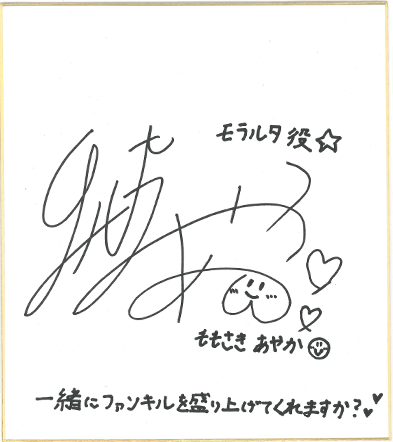 モラルタ役☆
ももさき あやか
一緒にファンキルを盛り上げてくれますか？